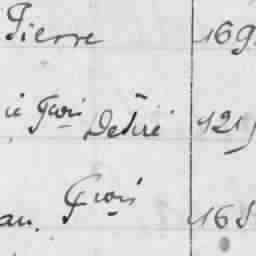 Pierre 169
ie Fçois Désiré 121
Fçois
au. 168